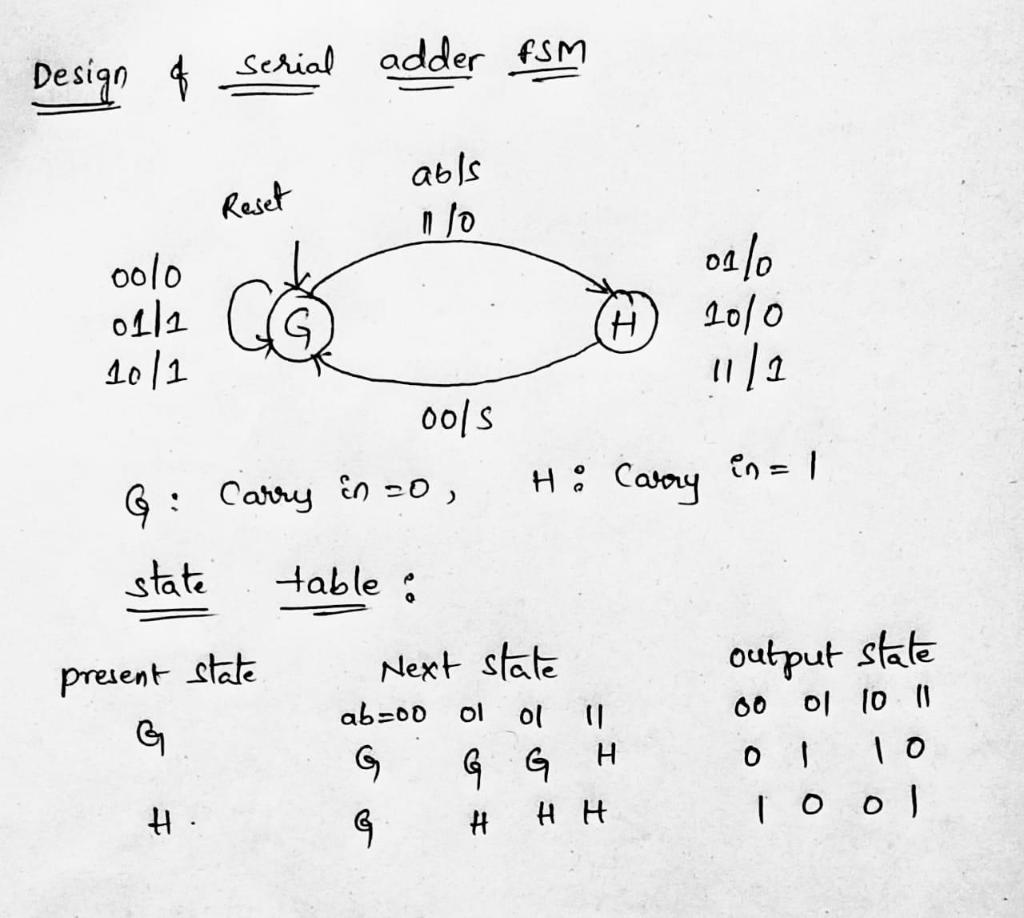 Design of serial adder FSM
ab/s
Reset
11/0
00/0
01/1
10/1
G
H
01/0
10/0
11/1
00/S
G: Carry in =0, H: Carry in = 1
state table:
present state Next state output state
ab=00 01 01 11 00 01 10 11
G G G G H 0 1 1 0
H. G H H H 1 0 0 1